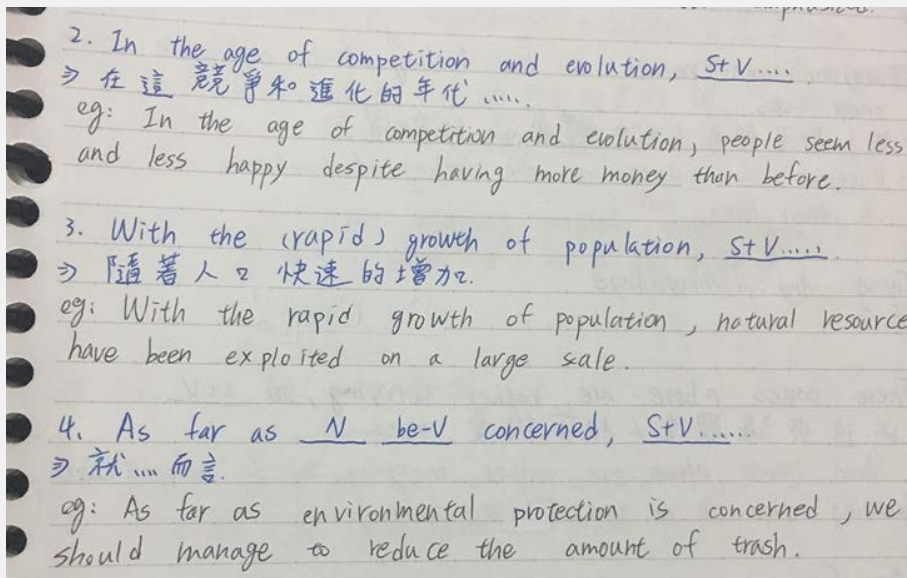 2. In the age of competition and evolution, S+V....
⇒ 在這 競爭和進化的年代 .....
eg: In the age of competition and evolution, people seem less
and less happy despite having more money than before.
3. With the (rapid) growth of population, S+V.....
⇒ 隨著人口 快速的增加.
eg: With the rapid growth of population, natural resource
have been exploited on a large scale.
4. As far as N be-V concerned, S+V......
⇒ 就....而言.
eg: As far as environmental protection is concerned, we
should manage to reduce the amount of trash.